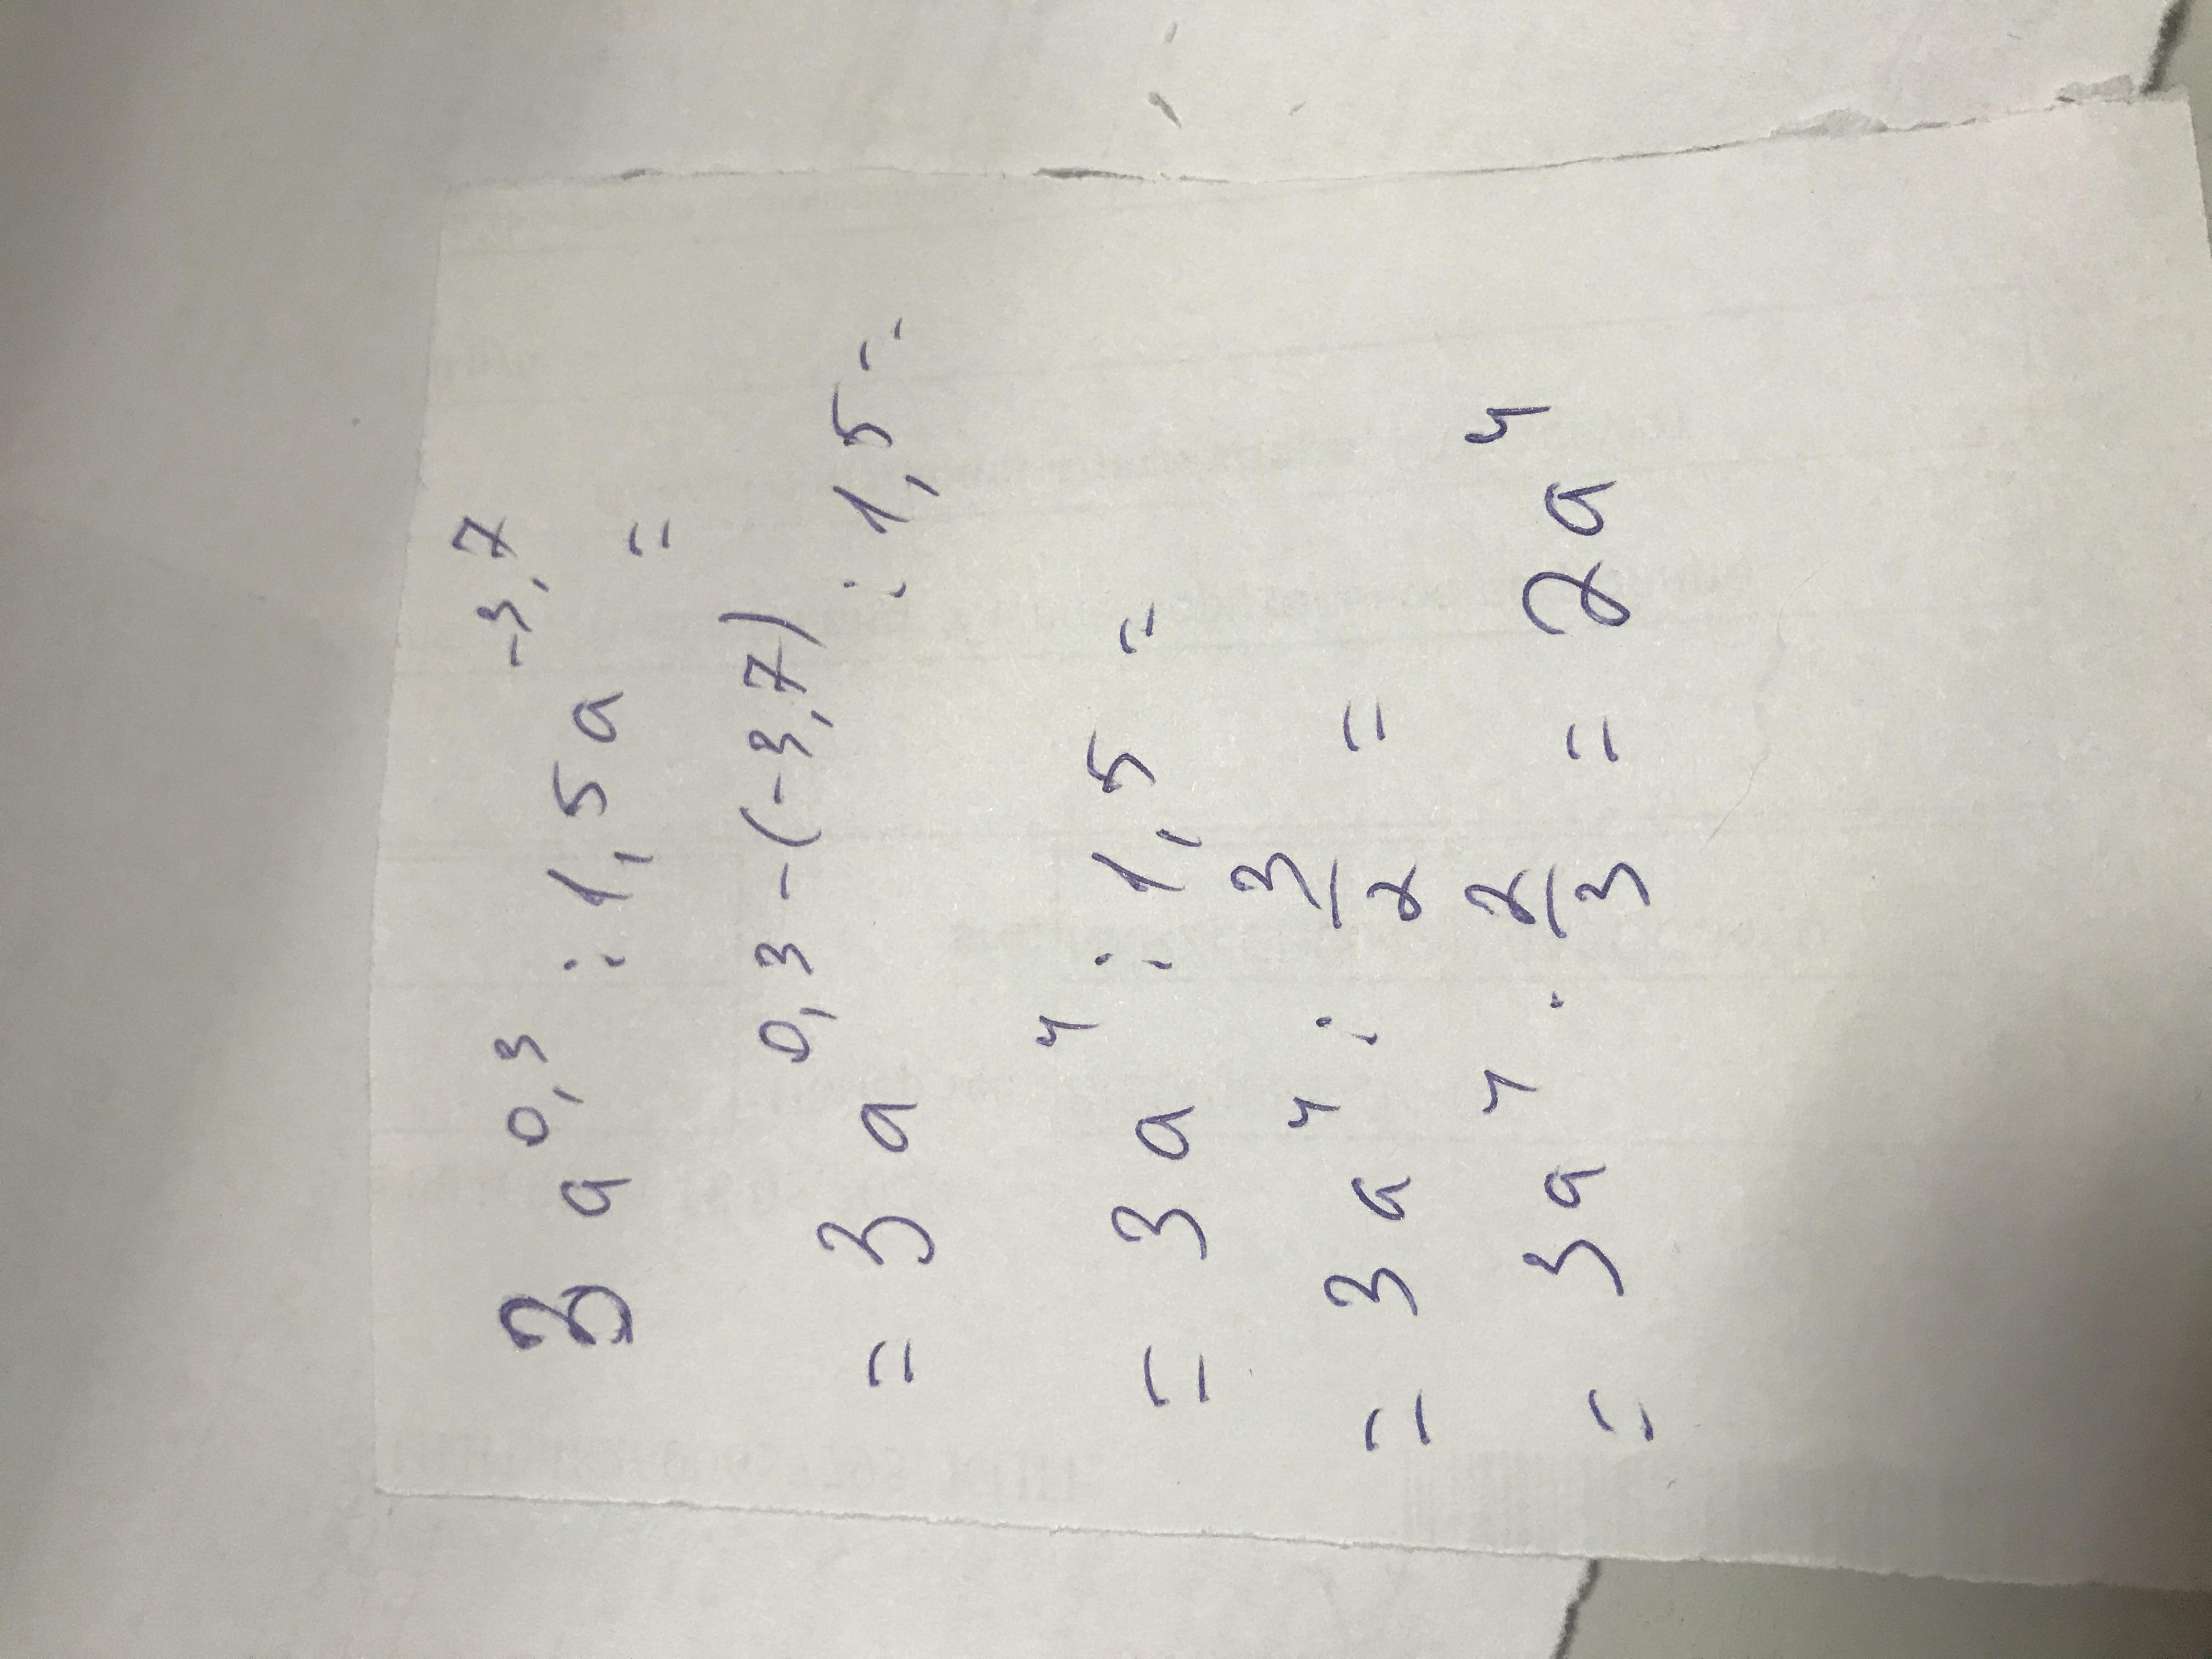 3a^0,3 : 1,5a^-3,7 =
= 3a^0,3-(-3,7) : 1,5 =
= 3a^4 : 1,5 =
= 3a^4 : 3/2 =
= 3a^4 · 2/3 = 2a^4